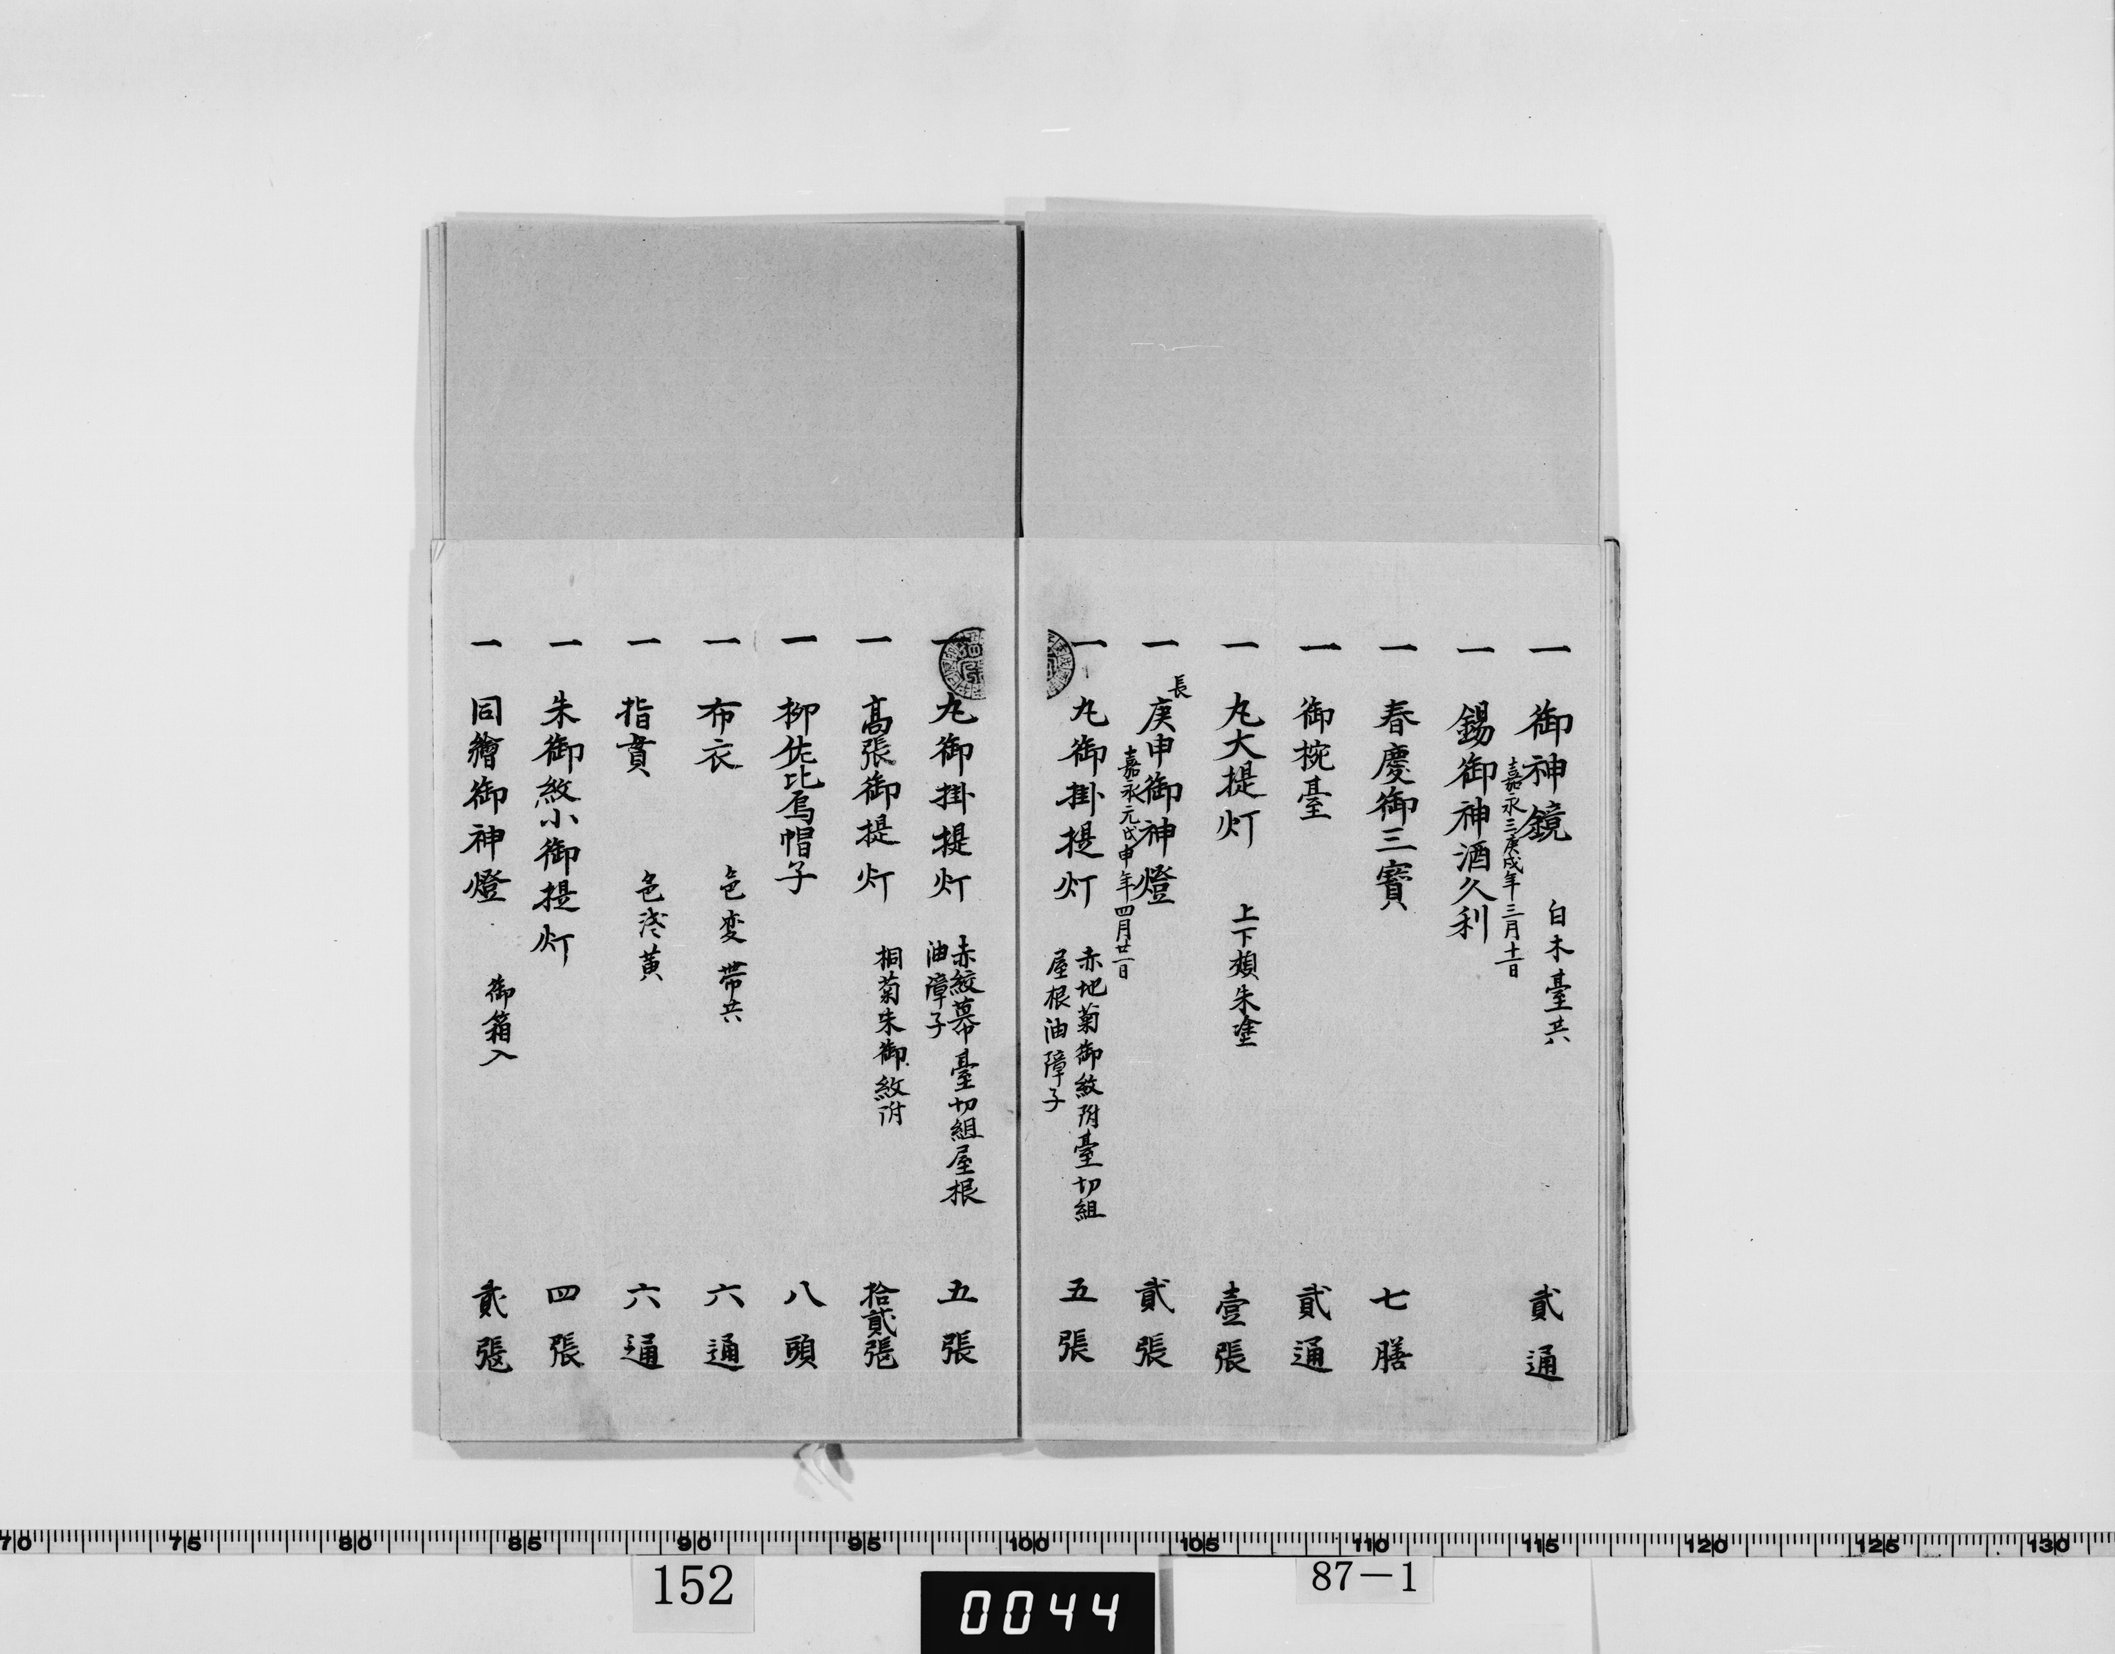 一 御神鏡 白木臺共 貳通
嘉永三庚戌年三月十一日
一 錫御神酒久利
一 春慶御三寳 七膳
一 御椀臺 貳通
一 丸大提灯 上下類朱塗 壹張
長
一 庚申御神燈 貳張
嘉永元戊申年四月廿一日
一 丸御掛提灯 赤地菊御紋附臺切組 五張
屋根油障子
一 丸御掛提灯 赤紋幕臺切組屋根 五張
油障子
一 髙張御提灯 桐菊朱御紋附 拾貳張
一 柳佐比烏帽子 八頭
一 布衣 色変 帯共 六通
一 指貫 色淺黄 六通
一 朱御紋小御提灯 四張
一 同繪御神燈 御箱入 貳張
70 75 80 85 90 95 100 105 110 115 120 125 130
152
0044
87-1